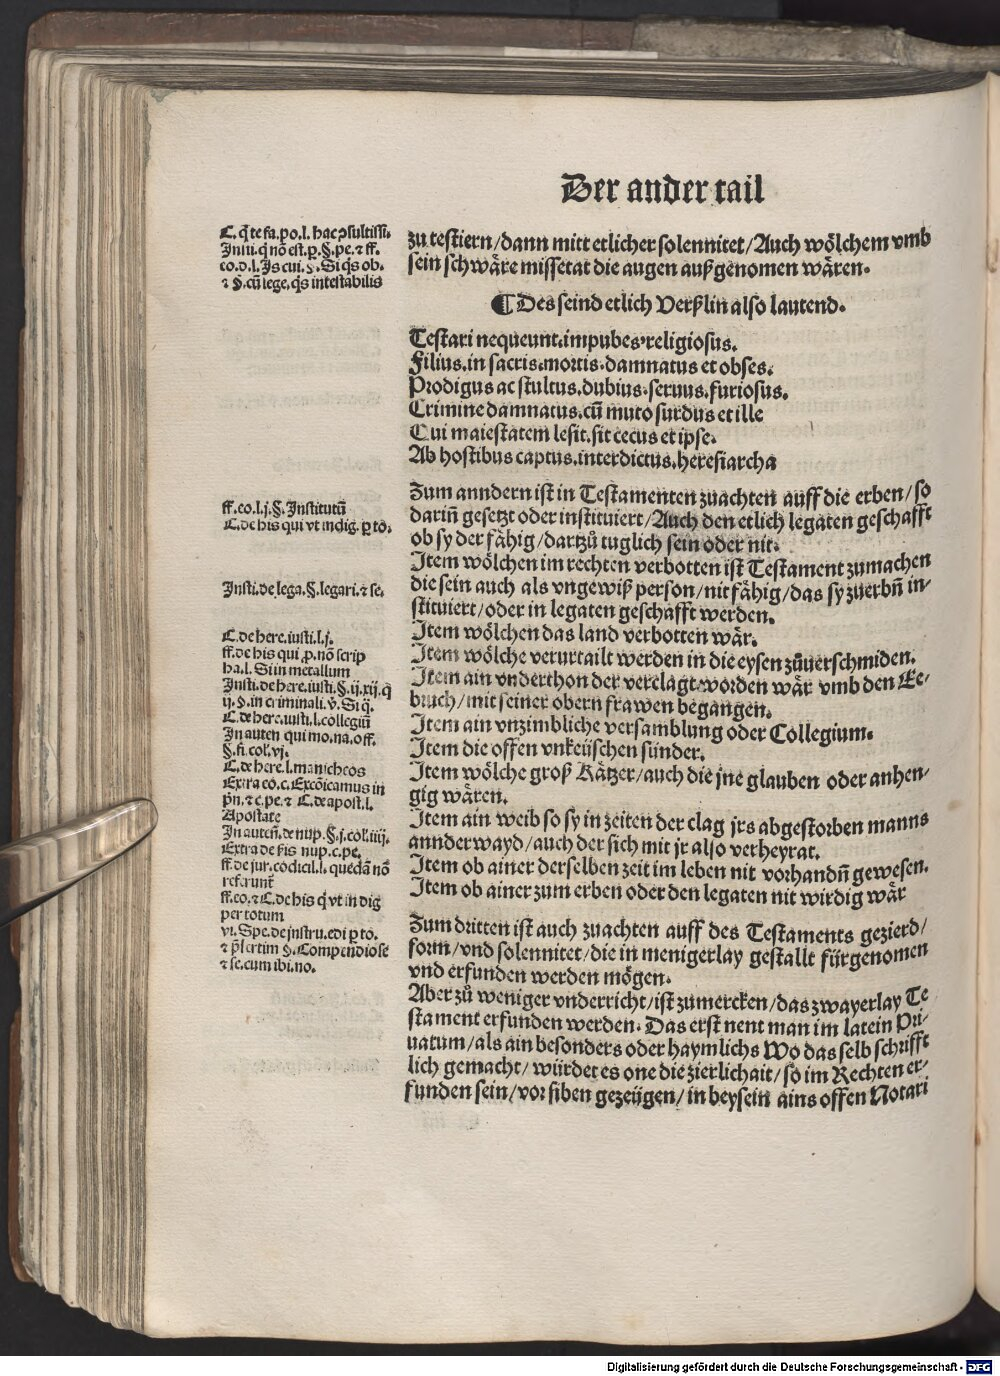 Der ander tail
C. q̄ te fa. po. l. hac ꝯsultissi.
Insti. q̄ nō est. p. §. pe. ⁊ ff.
eo. d. l. Is cui. §. Si q̄s ob.
⁊ §. cū lege. q̄s intestabilis
zu testiern/dann mitt etlicher solennitet/Auch wölchem vmb
sein schwäre missetat die augen auß genomen wären.
¶Des seind etlich Verßlin also lautend.
Testari nequeunt.impubes,religiosus.
Filius.in sacris.mortis.damnatus et obses.
Prodigus ac stultus.dubius.seruus.furiosus.
Crimine damnatus.cū muto surdus et ille
Qui maiestatem lesit.sit cecus et ipse.
Ab hostibus captus.interdictus.heresiarcha
ff. eo. l. j. §. Institutū
C. de his qui vt indig. p to.
Insti. de lega. §. legari. ⁊ se.
C. de here. insti. l. j.
ff. de his qui ꝓ. nō scrip
ha. l. Si in metallum
Insti. de here. insti. §. ij. xij. q̄
ij. §. in criminali. v̄. Si q̄.
C. de here. insti. l. collegiū
In auten qui mo. na. off.
§. fi. col. vj.
C. de here. l. manicheos
Extra eo. c. Excōicamus in
pn̄. ⁊ c. pe. ⁊ C. de apost. l.
Apostate
In autēn. de nup. §. j. col. iiij.
Extra de ẜis nup. c. pe.
ff. de jur. codicil. l. quedā nō
referunt
ff. eo. ⁊ C. de his q̄ vt in dig
per totum
vi. Spe. de instru. edi p to.
⁊ p̄sertim §. Compendiose
⁊ se. cum ibi. no.
Zum anndern ist in Testamenten zuachten auff die erben/so
dariñ gesetzt oder instituiert/Auch den etlich legaten geschafft
ob sy der fähig/dartzů tuglich sein oder nit.
Item wölchen im rechten verbotten ist Testament zumachen
die sein auch als vngewiß person/nit fähig/das sy zuerbñ in-
stituiert/oder in legaten geschafft werden.
Item wölchen das land verbotten wär.
Item wölche verurtailt werden in die eysen zůuerschmiden.
Item ain vnderthon der verclagt worden wär vmb den Ee-
bruch/mit seiner obern frawen begangen.
Item ain vnzimbliche versamblung oder Collegium.
Item die offen vnkeüschen sünder.
Item wölche groß Kätzer/auch die jne glauben oder anhen-
gig wären.
Item ain weib so sy in zeiten der clag jrs abgestorben manns
annderwayd/auch der sich mit jr also verheyrat.
Item ob ainer derselben zeit im leben nit vorhandñ gewesen.
Item ob ainer zum erben oder den legaten nit wirdig wär
Zum dritten ist auch zuachten auff des Testaments gezierd/
form/vnd solennitet/die in menigerlay gestallt fürgenomen
vnd erfunden werden mögen.
Aber zů weniger vnderricht/ist zumercken/das zwayerlay Te
stament erfunden werden. Das erst nent man im latein Pri-
uatum/als ain besonders oder haymlichs Wo das selb schrifft
lich gemacht/würdet es one die zierlichait/so im Rechten er-
funden sein/vor siben gezeügen/in beysein ains offen Notari
Digitalisierung gefördert durch die Deutsche Forschungsgemeinschaft - DFG